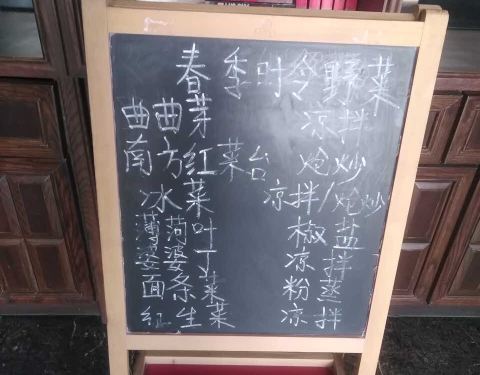 春季时令野菜
曲曲芽 凉拌
南方红菜台 炝炒
冰菜 凉拌/炝炒
薄荷叶 椒盐
婆婆丁 凉拌
面条菜 粉蒸
红生菜 凉拌